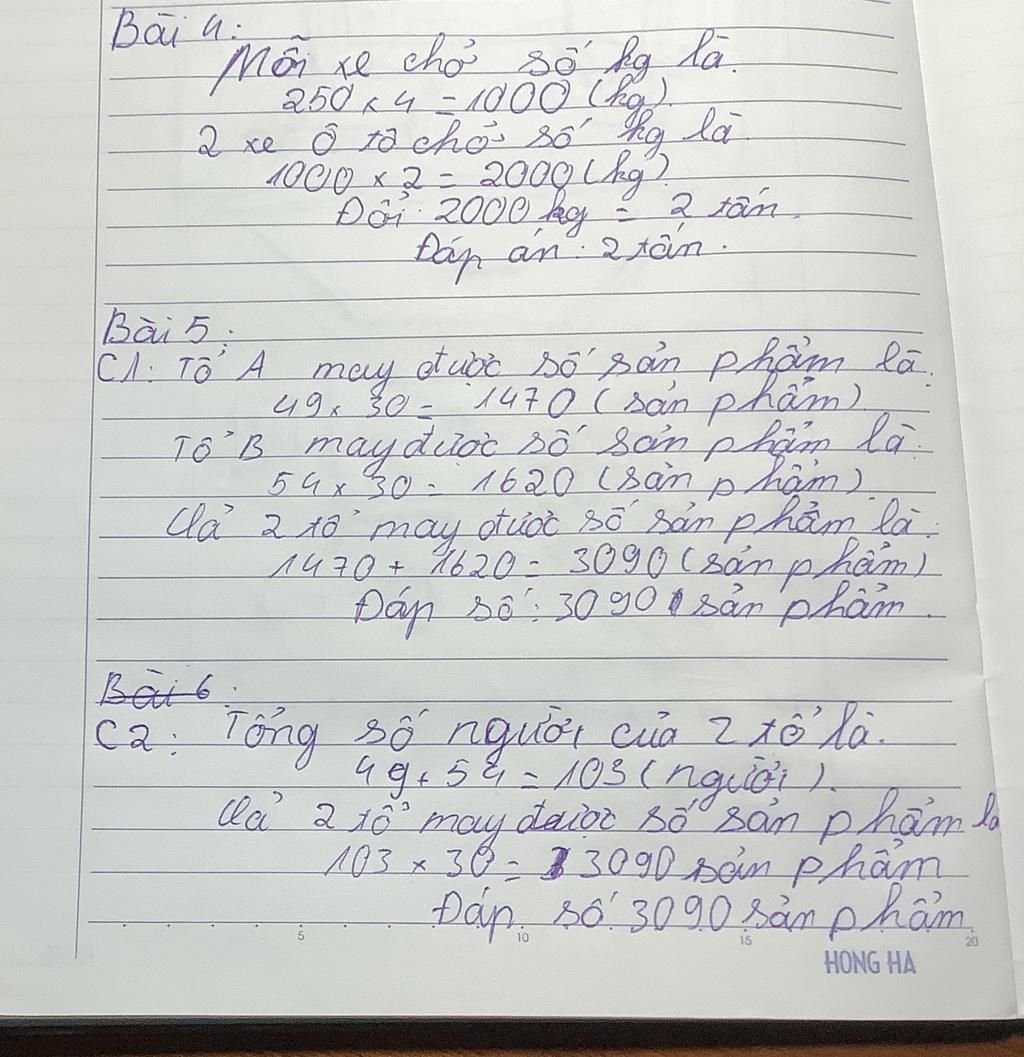 Bài 4:
Mỗi xe chở số kg là.
250 x 4 = 1000 (kg).
2 xe ô tô chở số kg là
1000 x 2 = 2000 (kg)
Đổi: 2000 kg = 2 tấn.
Đáp án: 2 tấn.
Bài 5:
C1: Tổ A may được số sản phẩm là:
49 x 30 = 1470 (sản phẩm)
Tổ B may được số sản phẩm là:
54 x 30 = 1620 (sản phẩm)
Cả 2 tổ may được số sản phẩm là:
1470 + 1620 = 3090 (sản phẩm)
Đáp số: 3090 sản phẩm.
Bài 6:
C2: Tổng số người của 2 tổ là.
49 + 54 = 103 (người).
Cả 2 tổ may được số sản phẩm là
103 x 30 = 3090 sản phẩm
Đáp số 3090 sản phẩm.
5 10 15 20
HONG HA